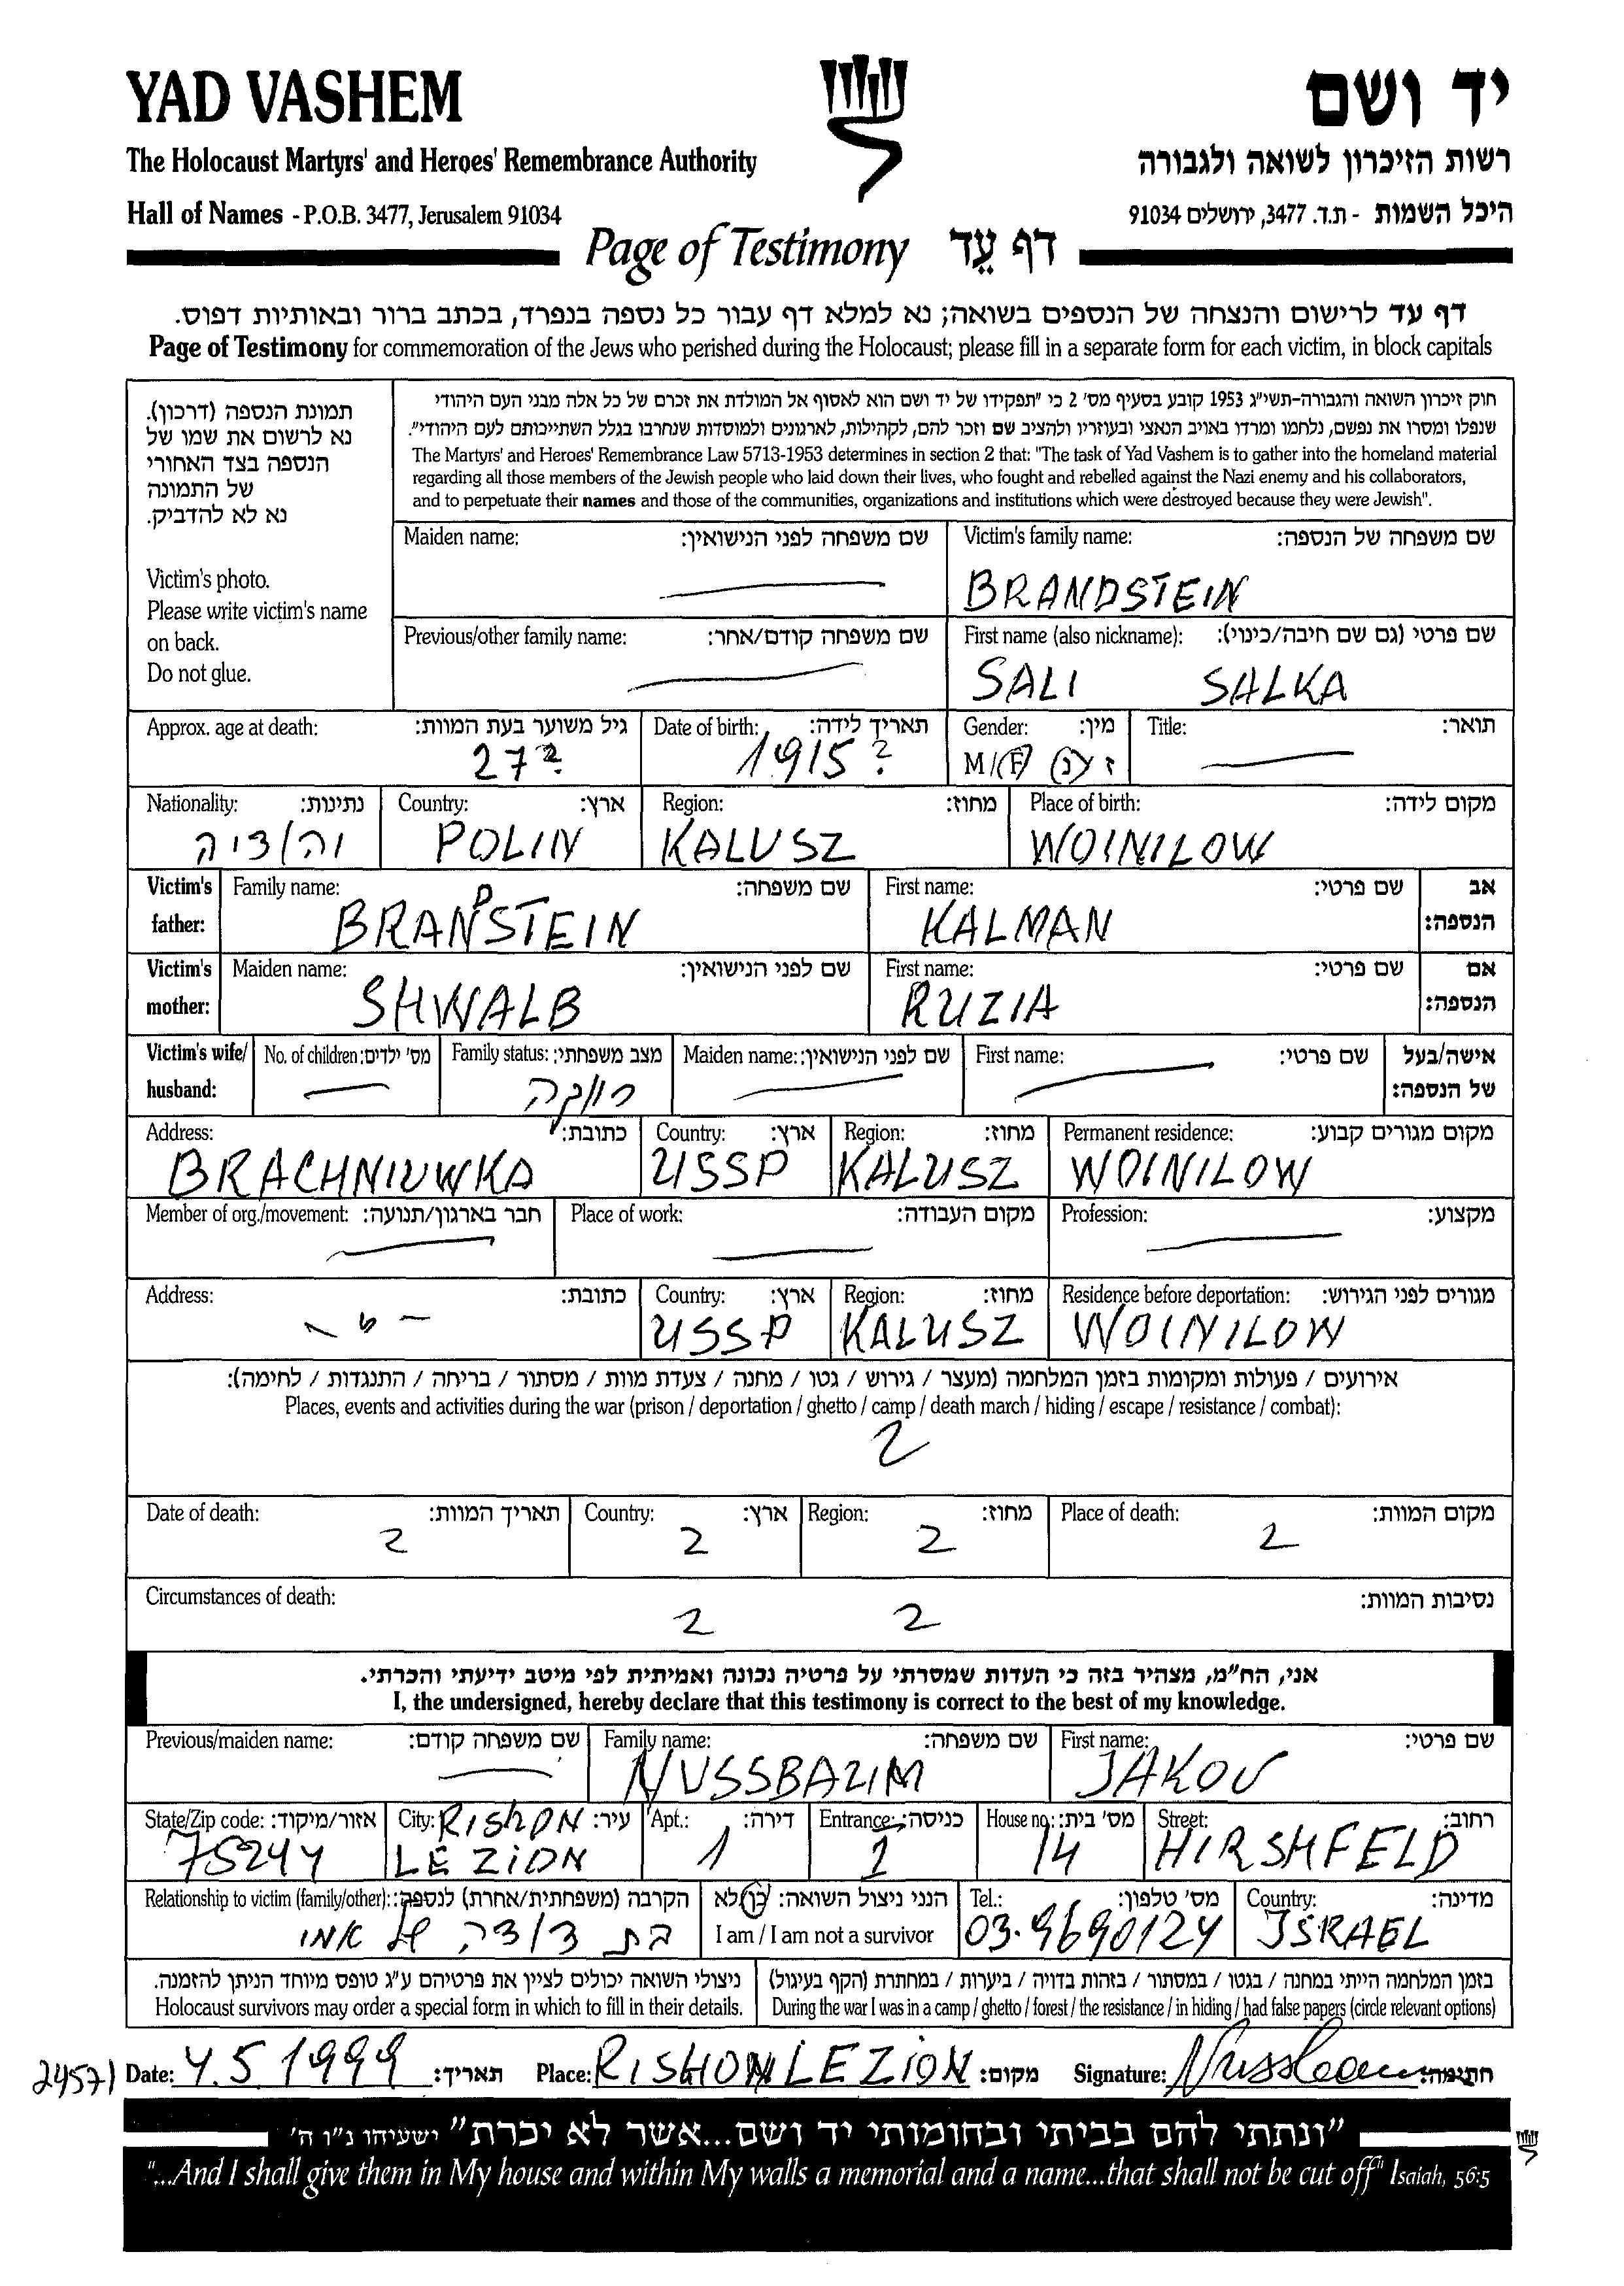 YAD VASHEM
יד ושם
The Holocaust Martyrs' and Heroes' Remembrance Authority
רשות הזיכרון לשואה ולגבורה
Hall of Names - P.O.B. 3477, Jerusalem 91034
היכל השמות - ת.ד. 3477, ירושלים 91034
Page of Testimony דף עֵד
דף עד לרישום והנצחה של הנספים בשואה; נא למלא דף עבור כל נספה בנפרד, בכתב ברור ובאותיות דפוס.
Page of Testimony for commemoration of the Jews who perished during the Holocaust; please fill in a separate form for each victim, in block capitals
תמונת הנספה (דרכון).
נא לרשום את שמו של
הנספה בצד האחורי
של התמונה
נא לא להדביק.
Victim's photo.
Please write victim's name
on back.
Do not glue.
חוק זיכרון השואה והגבורה-תשי"ג 1953 קובע בסעיף מס' 2 כי "תפקידו של יד ושם הוא לאסוף אל המולדת את זכרם של כל אלה מבני העם היהודי
שנפלו ומסרו את נפשם, נלחמו ומרדו באויב הנאצי ובעוזריו ולהציב שם וזכר להם, לקהילות, לארגונים ולמוסדות שנחרבו בגלל השתייכותם לעם היהודי".
The Martyrs' and Heroes' Remembrance Law 5713-1953 determines in section 2 that: "The task of Yad Vashem is to gather into the homeland material
regarding all those members of the Jewish people who laid down their lives, who fought and rebelled against the Nazi enemy and his collaborators,
and to perpetuate their names and those of the communities, organizations and institutions which were destroyed because they were Jewish".
Maiden name: שם משפחה לפני הנישואין:
Victim's family name: שם משפחה של הנספה:
BRANDSTEIN
Previous/other family name: שם משפחה קודם/אחר:
First name (also nickname): שם פרטי (גם שם חיבה/כינוי):
SALI SALKA
Approx. age at death: גיל משוער בעת המוות:
27?
Date of birth: תאריך לידה:
1915?
Gender: מין:
M/F ז נ
Title: תואר:
Nationality: נתינות:
Country: ארץ:
POLIN
Region: מחוז:
KALUSZ
Place of birth: מקום לידה:
WOINILOW
Victim's father:
Family name: שם משפחה:
BRANDSTEIN
First name: שם פרטי:
KALMAN
אב הנספה:
Victim's mother:
Maiden name: שם לפני הנישואין:
SHWALB
First name: שם פרטי:
RUZIA
אם הנספה:
Victim's wife/ husband:
No. of children: מס' ילדים:
Family status: מצב משפחתי:
רווקה
Maiden name: שם לפני הנישואין:
First name: שם פרטי:
אישה/בעל של הנספה:
Address: כתובת:
BRACHNIUWKA
Country: ארץ:
USSP
Region: מחוז:
KALUSZ
Permanent residence: מקום מגורים קבוע:
WOINILOW
Member of org./movement: חבר בארגון/תנועה:
Place of work: מקום העבודה:
Profession: מקצוע:
Address: כתובת:
Country: ארץ:
USSP
Region: מחוז:
KALUSZ
Residence before deportation: מגורים לפני הגירוש:
WOINILOW
אירועים / פעולות ומקומות בזמן המלחמה (מעצר / גירוש / גטו / מחנה / צעדת מוות / מסתור / בריחה / התנגדות / לחימה):
Places, events and activities during the war (prison / deportation / ghetto / camp / death march / hiding / escape / resistance / combat):
?
Date of death: תאריך המוות:
?
Country: ארץ:
?
Region: מחוז:
?
Place of death: מקום המוות:
?
Circumstances of death: נסיבות המוות:
? ?
אני, הח"מ, מצהיר בזה כי העדות שמסרתי על פרטיה נכונה ואמיתית לפי מיטב ידיעתי והכרתי.
I, the undersigned, hereby declare that this testimony is correct to the best of my knowledge.
Previous/maiden name: שם משפחה קודם:
Family name: שם משפחה:
NUSSBAUM
First name: שם פרטי:
JAKOV
State/Zip code: אזור/מיקוד:
75244
City: עיר:
RISHON
LE ZION
Apt.: דירה:
1
Entrance: כניסה:
1
House no: מס' בית:
14
Street: רחוב:
HIRSHFELD
Relationship to victim (family/other): הקרבה (משפחתית/אחרת) לנספה:
בת דודה של אמי
הנני ניצול השואה: כן/לא
I am / I am not a survivor
Tel.: מס' טלפון:
03-9690124
Country: מדינה:
ISRAEL
ניצולי השואה יכולים לציין את פרטיהם ע"ג טופס מיוחד הניתן להזמנה.
Holocaust survivors may order a special form in which to fill in their details.
בזמן המלחמה הייתי במחנה / בגטו / במסתור / בזהות בדויה / ביערות / במחתרת (הקף בעיגול)
During the war I was in a camp / ghetto / forest / the resistance / in hiding / had false papers (circle relevant options)
24571 Date: 4.5.1999 תאריך: Place: RISHON LE ZION מקום: Signature: Nussbaum חתימה:
"ונתתי להם בביתי ובחומותי יד ושם...אשר לא יכרת" ישעיהו נ"ו ה'
"...And I shall give them in My house and within My walls a memorial and a name...that shall not be cut off" Isaiah, 56:5